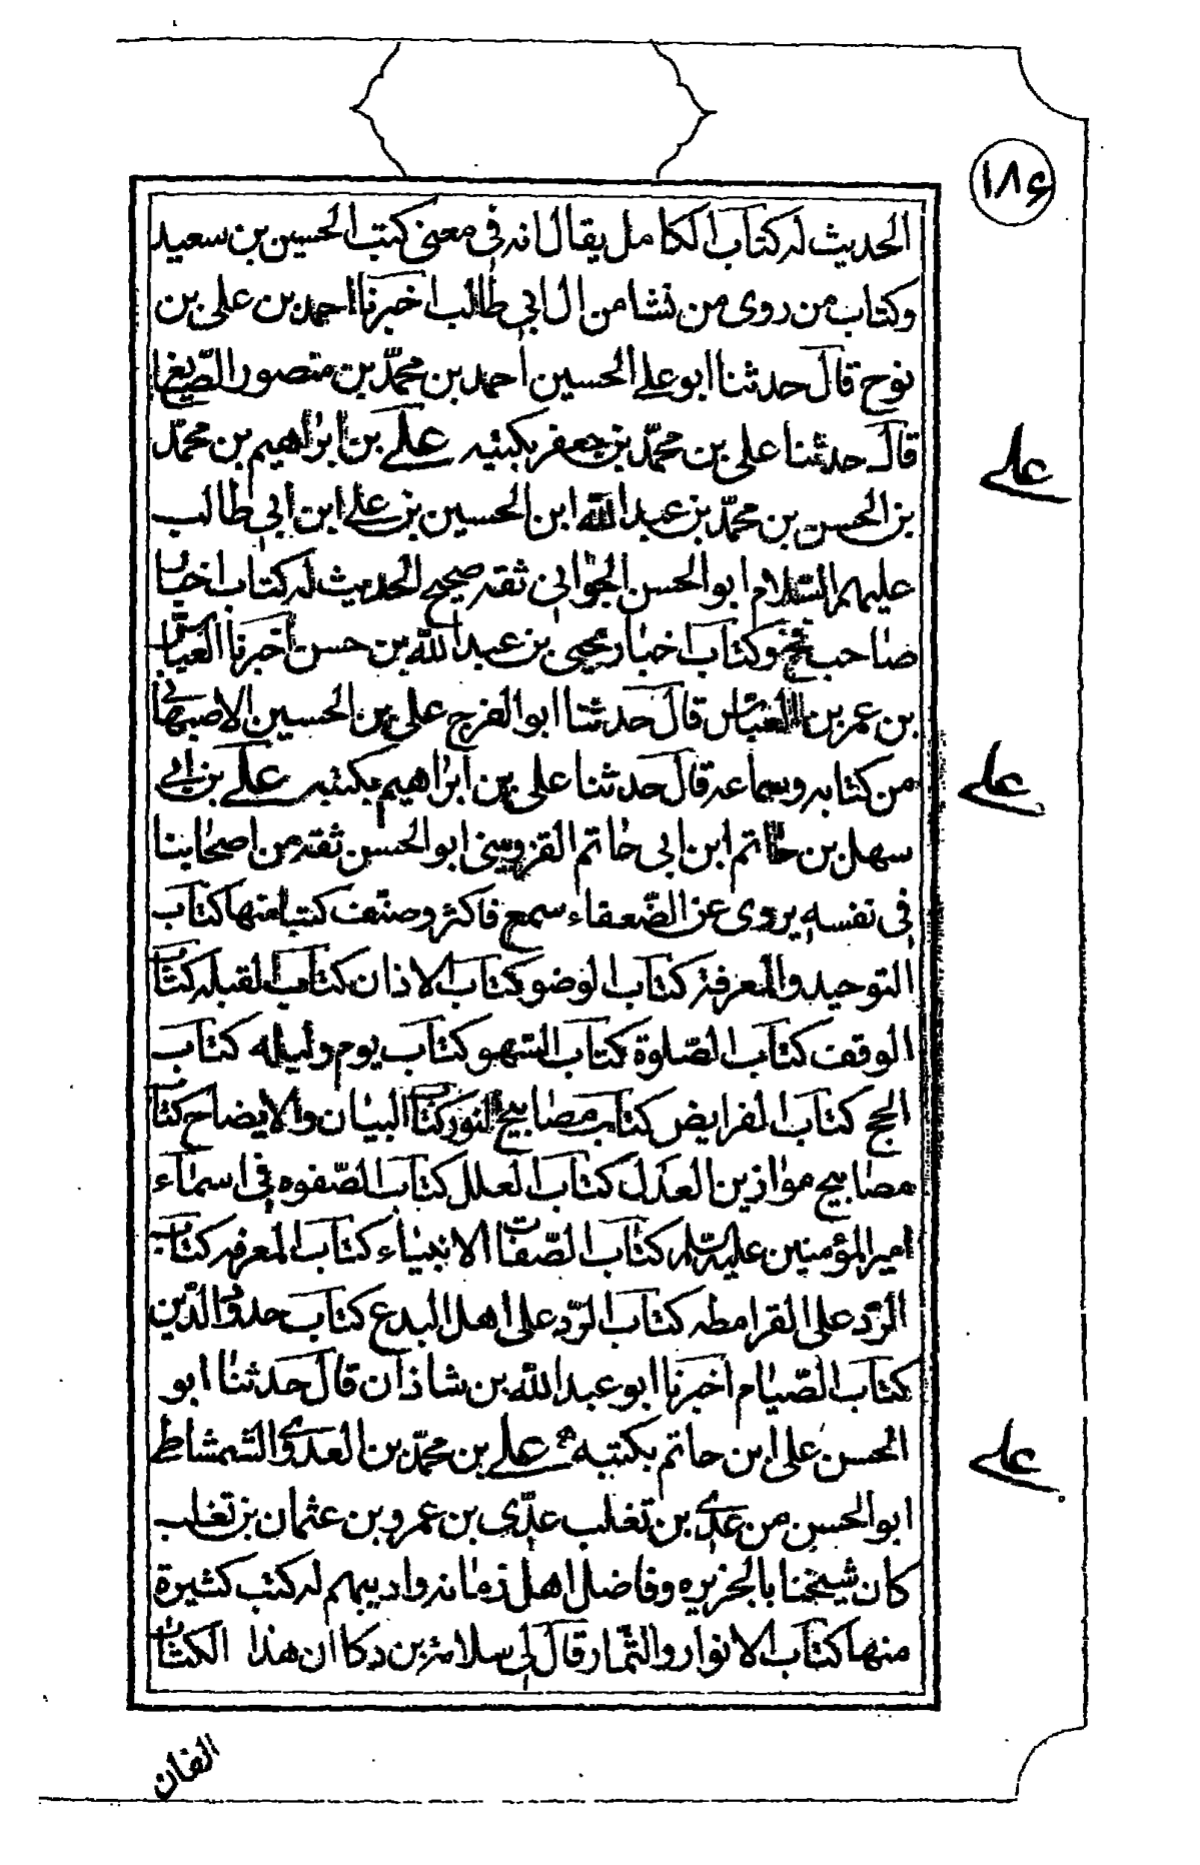 ١٨٤
الحديث له كتاب الكامل يقال انه فى معنى كتب الحسين بن سعيد
وكتاب من روى من نشا من ال ابي طالب اخبرنا احمد بن على بن
نوح قال حدثنا ابو على الحسين احمد بن محمّد بن منصور الصّيغا
قال حدثنا على بن محمّد بن جعفر بكتبه على بن ابراهيم بن محمّد
بن الحسن بن محمّد بن عبدالله ابن الحسين بن على ابن ابي طالب
عليهم السّلام ابو الحسن الجوّانى ثقه صحيح الحديث له كتاب اخبار
صاحب فخ وكتاب اخبار يحيى بن عبدالله بن حسن اخبرنا العباس
بن عمر بن العباس قال حدثنا ابو الفرج على بن الحسين الاصبهانى
من كتابه وسماعه قال حدثنا على بن ابراهيم بكتبه على بن ابى
سهل بن حاتم ابن ابى حاتم القزوينى ابو الحسن ثقه من اصحابنا
فى نفسه يروى عن الضّعفاء سمع فاكثر وصنّف كتبا منها كتاب
التوحيد والمعرفة كتاب الوضو كتاب الاذان كتاب القبله كتاب
الوقف كتاب الصّلوة كتاب السهو كتاب يوم وليله كتاب
الحج كتاب الفرايض كتاب مصابيح النور كتاب البيان والايضاح كتاب
مصابيح موازين العدل كتاب العلل كتاب الصّفوه فى اسماء
امير المؤمنين عليه كتاب الصّفات الانبياء كتاب المعرفه كتاب
الرّد على القرامطه كتاب الرّد على اهل البدع كتاب حدود الدّين
كتاب الصّيام اخبرنا ابو عبدالله بن شاذان قال حدثنا ابو
الحسن على ابن حاتم بكتبه على بن محمّد بن العدوى الشمشاطى
ابو الحسن من عدى بن تغلب عدّى بن عمرو بن عثمان بن تغلب
كان شيخنا بالجزيره وفاضل اهل زمانه واديبهم له كتب كثيرة
منها كتاب الانوار والثمار قال لى سلامة بن دكا ان هذا الكتاب
على
على
على
الفان